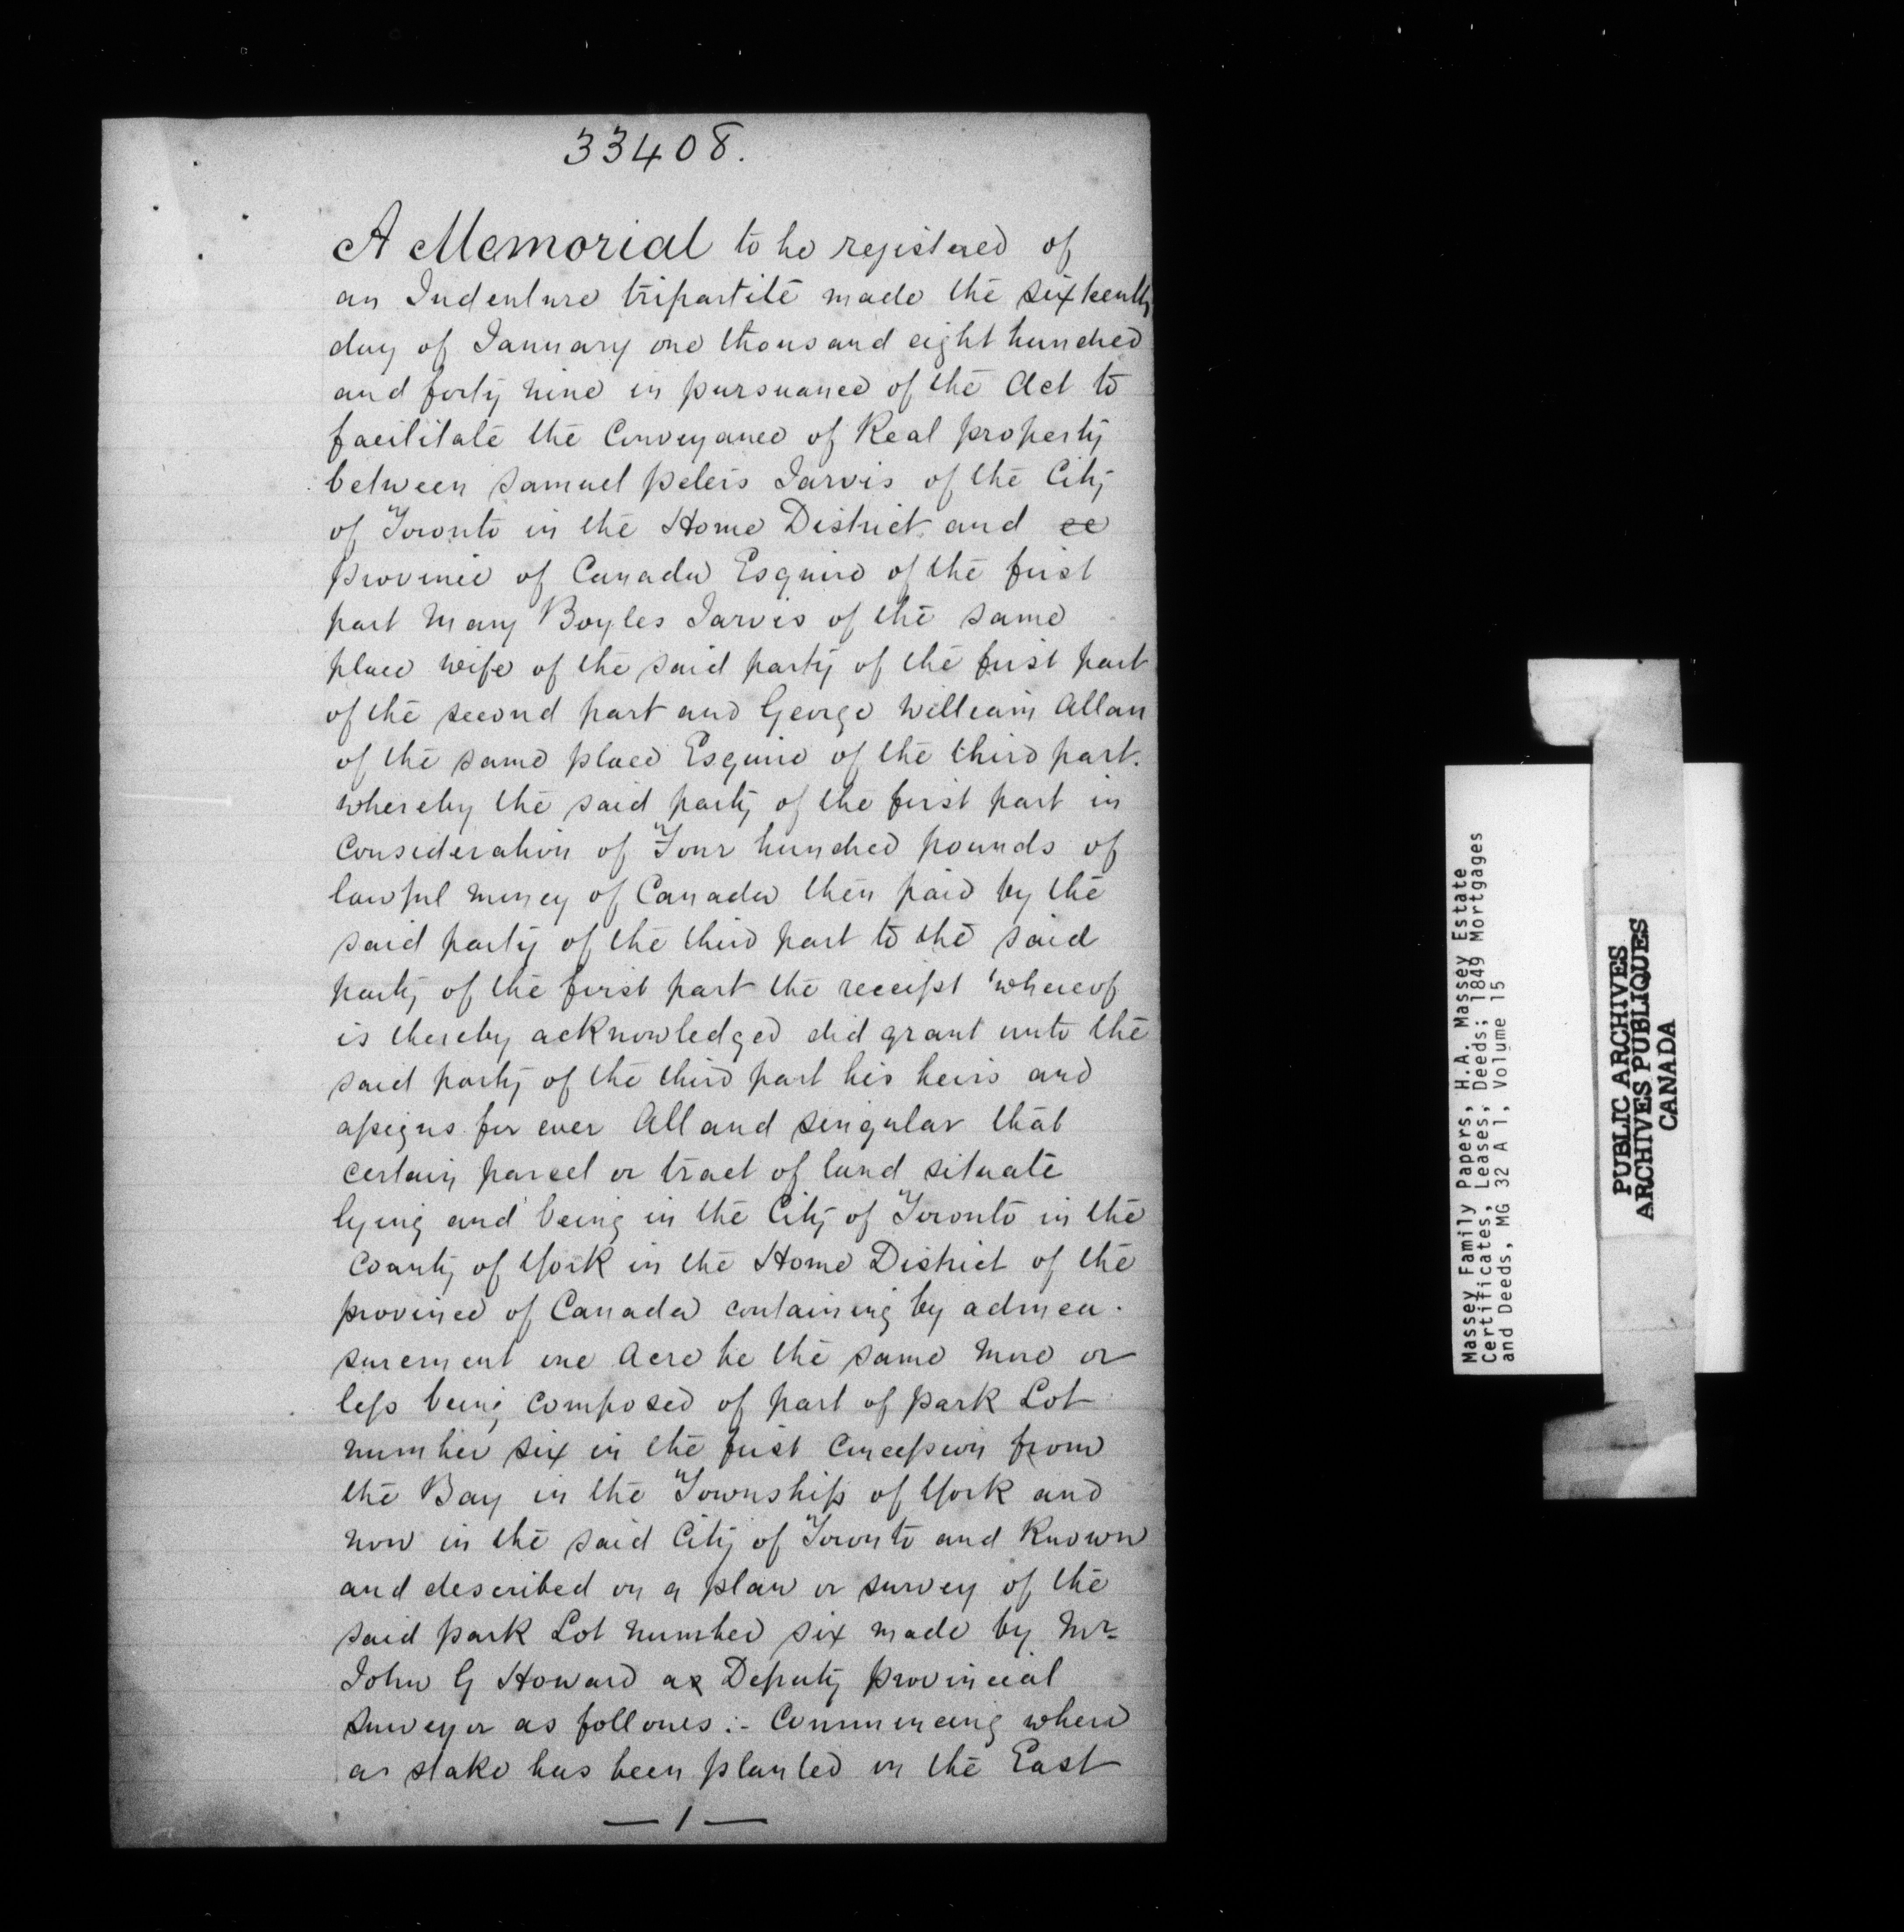 33408.
A Memorial to be registered of
an Indenture tripartite made the sixteenth
day of January one thousand eight hundred
and forty nine in pursuance of the Act to
facilitate the Conveyance of Real property
between Samuel peters Jarvis of the City
of Toronto in the Home District and
province of Canada Esquire of the first
part Mary Boyles Jarvis of the same
place wife of the said party of the first part
of the second part and George William Allan
of the same place Esquire of the third part.
whereby the said party of the first part in
Consideration of Four hundred pounds of
lawful money of Canada then paid by the
said party of the third part to the said
party of the first part the receipt whereof
is thereby acknowledged did grant unto the
said party of the third part his heirs and
assigns for ever All and singular that
certain parcel or tract of land situate
lying and being in the City of Toronto in the
County of York in the Home District of the
province of Canada containing by admea-
surement one Acre be the same more or
less being composed of part of park Lot
number six in the first Concession from
the Bay in the Township of York and
now in the said City of Toronto and Known
and described on a plan or survey of the
said park Lot number six made by Mr
John G Howard as Deputy provincial
Surveyor as follows:- Commencing where
a stake has been planted on the East
— 1 —
Massey Family Papers, H.A. Massey Estate
Certificates, Leases, Deeds; 1849 Mortgages
and Deeds, MG 32 A 1, Volume 15
PUBLIC ARCHIVES
ARCHIVES PUBLIQUES
CANADA